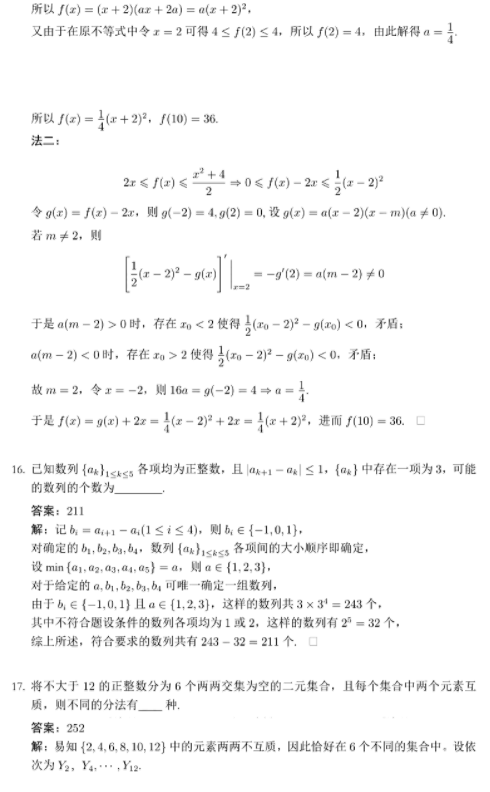 所以 f(x) = (x + 2)(ax + 2a) = a(x + 2)²，
又由于在原不等式中令 x = 2 可得 4 ≤ f(2) ≤ 4，所以 f(2) = 4，由此解得 a = 1/4.
所以 f(x) = 1/4(x + 2)²，f(10) = 36.
法二：
2x ⩽ f(x) ⩽ (x² + 4)/2 ⇒ 0 ⩽ f(x) − 2x ⩽ 1/2(x − 2)²
令 g(x) = f(x) − 2x，则 g(−2) = 4, g(2) = 0, 设 g(x) = a(x − 2)(x − m)(a ≠ 0).
若 m ≠ 2，则
[1/2(x − 2)² − g(x)]′|ₓ₌₂ = −g′(2) = a(m − 2) ≠ 0
于是 a(m − 2) > 0 时，存在 x₀ < 2 使得 1/2(x₀ − 2)² − g(x₀) < 0，矛盾；
a(m − 2) < 0 时，存在 x₀ > 2 使得 1/2(x₀ − 2)² − g(x₀) < 0，矛盾；
故 m = 2，令 x = −2，则 16a = g(−2) = 4 ⇒ a = 1/4.
于是 f(x) = g(x) + 2x = 1/4(x − 2)² + 2x = 1/4(x + 2)²，进而 f(10) = 36. □
16. 已知数列 {aₖ}₁≤ₖ≤₅ 各项均为正整数，且 |aₖ₊₁ − aₖ| ≤ 1，{aₖ} 中存在一项为 3，可能
的数列的个数为______.
答案：211
解：记 bᵢ = aᵢ₊₁ − aᵢ(1 ≤ i ≤ 4)，则 bᵢ ∈ {−1, 0, 1}，
对确定的 b₁, b₂, b₃, b₄，数列 {aₖ}₁≤ₖ≤₅ 各项间的大小顺序即确定，
设 min {a₁, a₂, a₃, a₄, a₅} = a，则 a ∈ {1, 2, 3}，
对于给定的 a, b₁, b₂, b₃, b₄ 可唯一确定一组数列，
由于 bᵢ ∈ {−1, 0, 1} 且 a ∈ {1, 2, 3}，这样的数列共 3 × 3⁴ = 243 个，
其中不符合题设条件的数列各项均为 1 或 2，这样的数列有 2⁵ = 32 个，
综上所述，符合要求的数列共有 243 − 32 = 211 个. □
17. 将不大于 12 的正整数分为 6 个两两交集为空的二元集合，且每个集合中两个元素互
质，则不同的分法有___ 种.
答案：252
解：易知 {2, 4, 6, 8, 10, 12} 中的元素两两不互质，因此恰好在 6 个不同的集合中。设依
次为 Y₂，Y₄, ⋯ , Y₁₂.